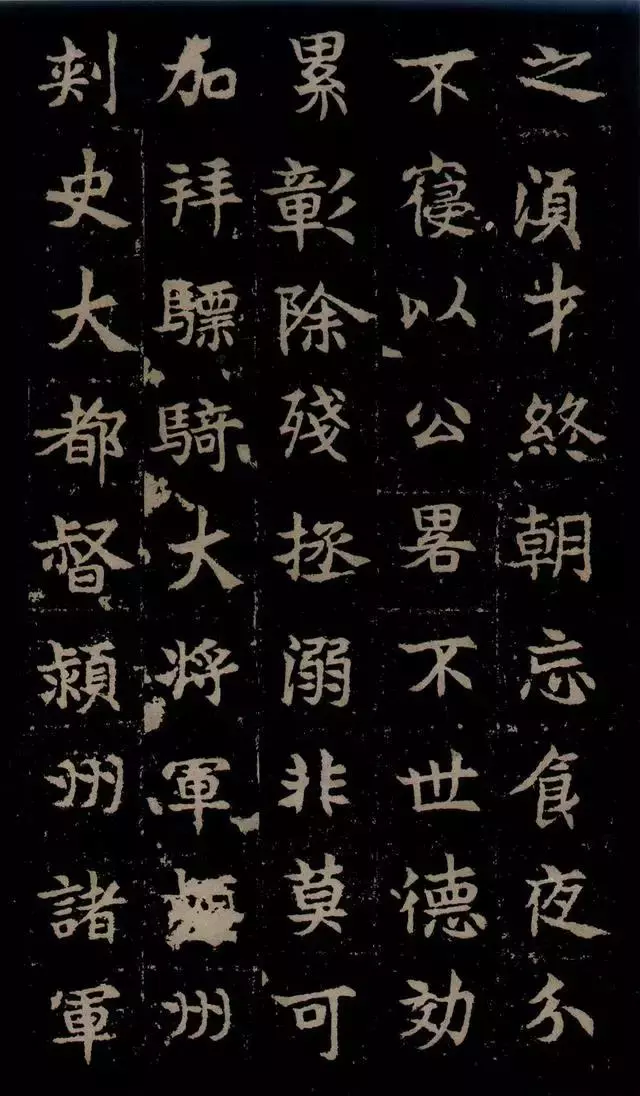 之湏才終朝忘食夜分
不寢以公畧不世德効
累彰除殘拯溺非莫可
加拜驃騎大將軍州
刺史大都督潁州諸軍